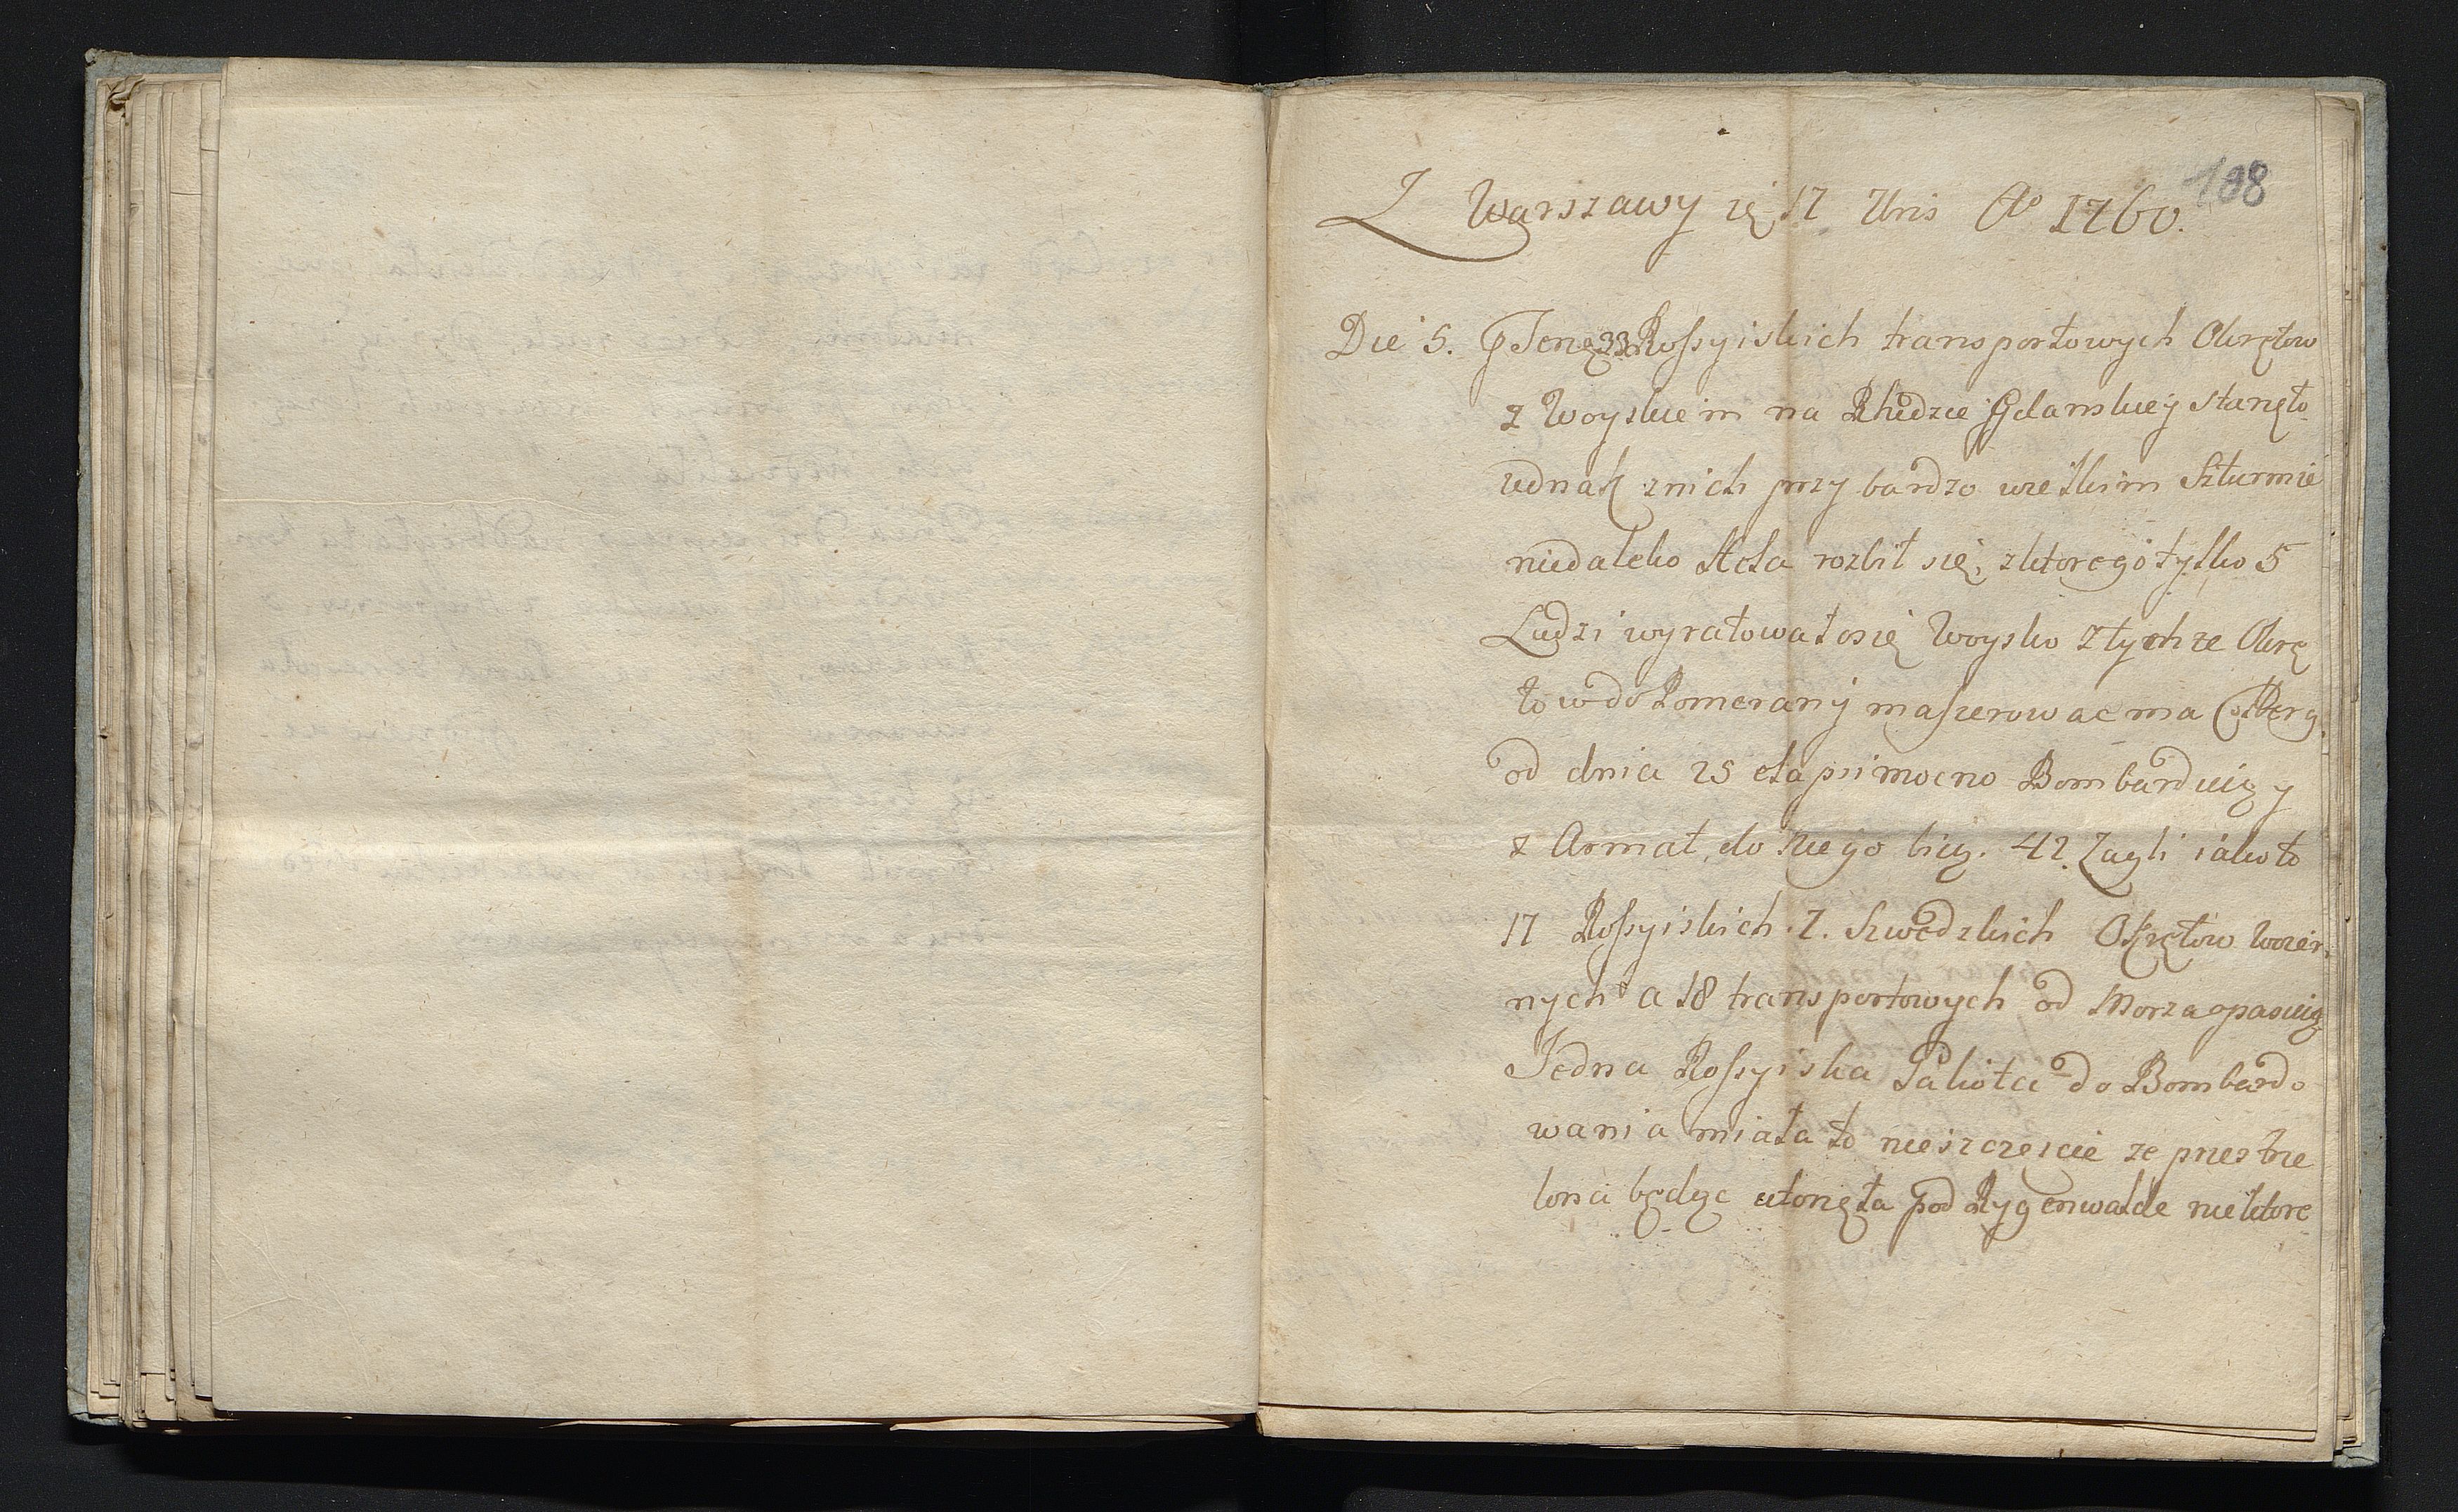 108
Z Warszawy 17 7bris Ao 1760.
Die 5. Rossyiskich transportowych Okrętow
z Woyskiem na Rhedzie Gdanskiey stanęło
iednak znich przy bardzo wielkim Szturmie
niedaleko Hela rozbił się, zktorego tylko 5
Ludzi wyratowało się Woysko z tychże Okrę
tow do Pomerany maszerowac ma Colberg.
od dnia 25 mocno Bombarduią y
z Armat do niego biią. 42. Zagli iako to
17 Rossyiskich. 7. Szwedzkich Okrętow woien.
nych a 18 transportowych od Morza opasuią
Jedna Rossyiska Galiota do Bombardo
wania miała to nieszczęscie ze przestrze
lona będąc utonęła pod Rygenwalde niektore